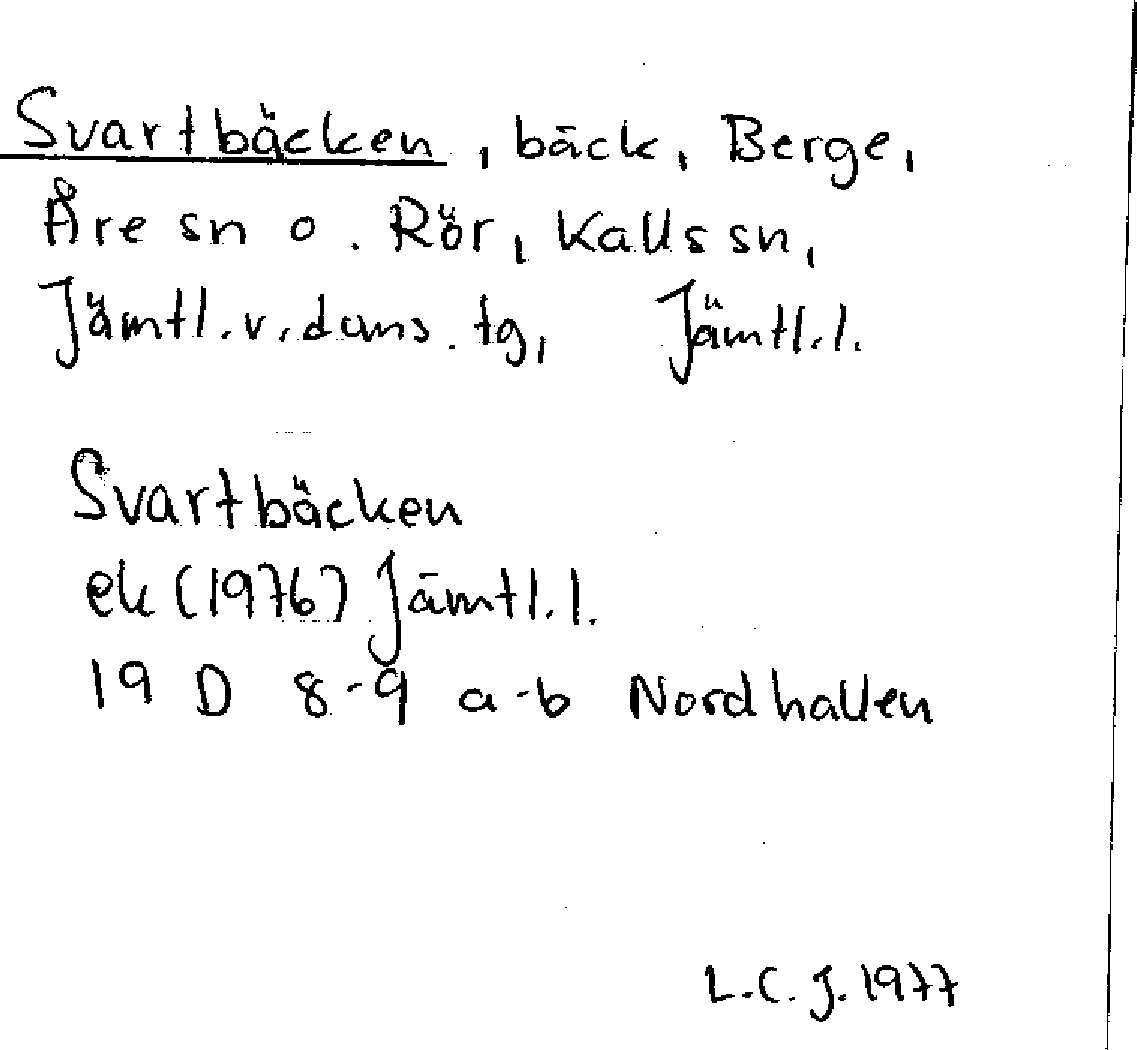 Svartbäcken, bäck, Berge,
Åre sn o. Rör, Kalls sn,
Jämtl.v.doms.tg, Jämtl.l.
Svartbäcken
ek (1976) Jämtl.l.
19 D 8-9 a-b Nordhallen
L.C.J. 1977